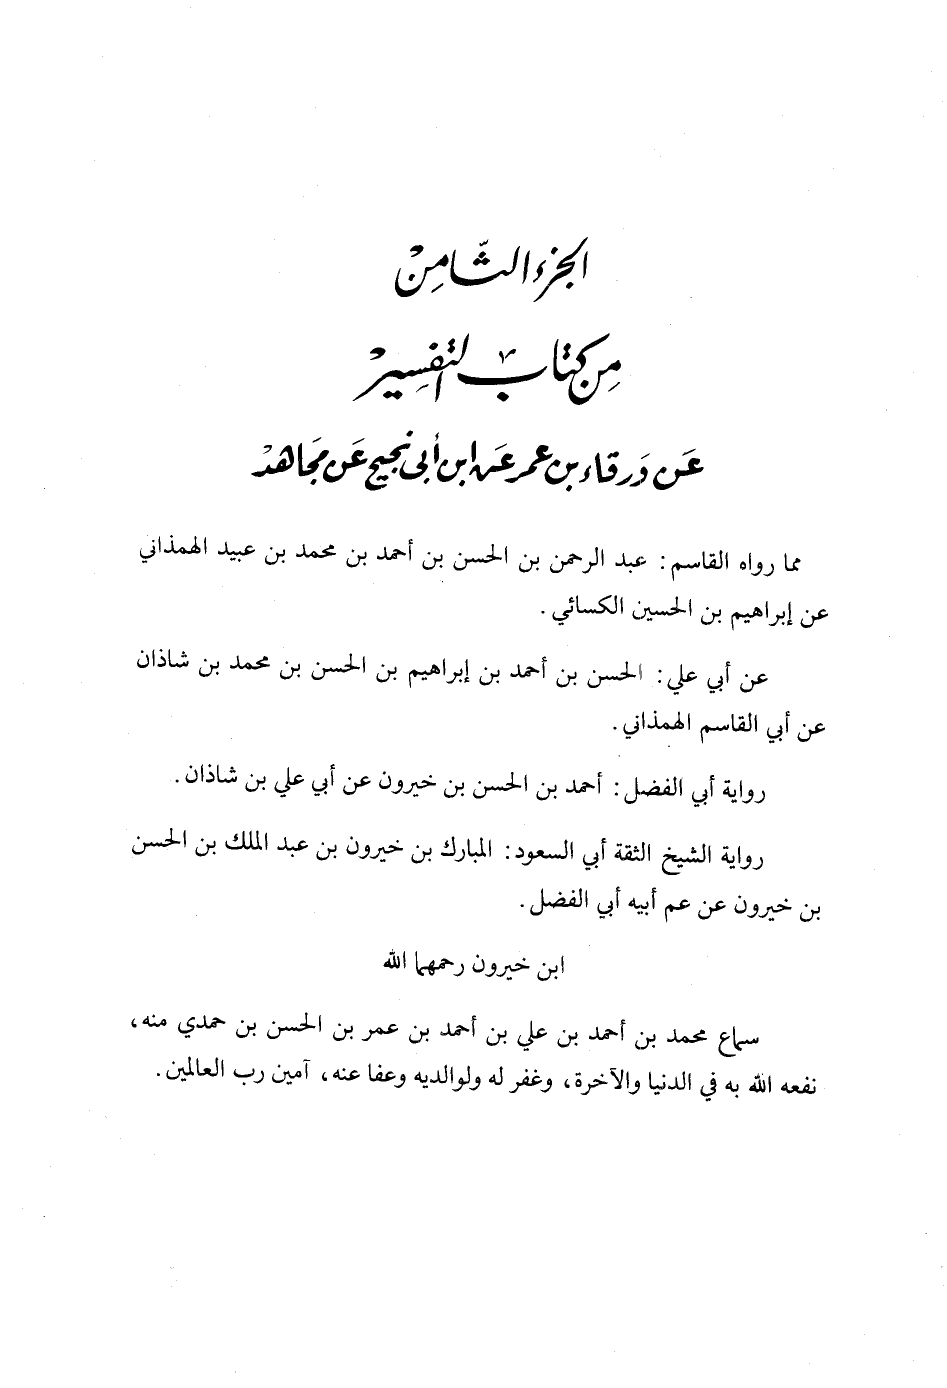 الجزء الثَّامِنْ
مِن كتاب التفسِيرْ
عَن وَرقاء بن عمر عَن ابن أبي نجيح عَن مجَاهدْ
مما رواه القاسم: عبد الرحمن بن الحسن بن أحمد بن محمد بن عبيد الهمذاني
عن إبراهيم بن الحسين الكسائي.
عن أبي علي: الحسن بن أحمد بن إبراهيم بن الحسن بن محمد بن شاذان
عن أبي القاسم الهمذاني.
رواية أبي الفضل: أحمد بن الحسن بن خيرون عن أبي علي بن شاذان.
رواية الشيخ الثقة أبي السعود: المبارك بن خيرون بن عبد الملك بن الحسن
بن خيرون عن عم أبيه أبي الفضل.
ابن خيرون رحمهما الله
سماع محمد بن أحمد بن علي بن أحمد بن عمر بن الحسن بن حمدي منه،
نفعه الله به في الدنيا والآخرة، وغفر له ولوالديه وعفا عنه، آمين رب العالمين.